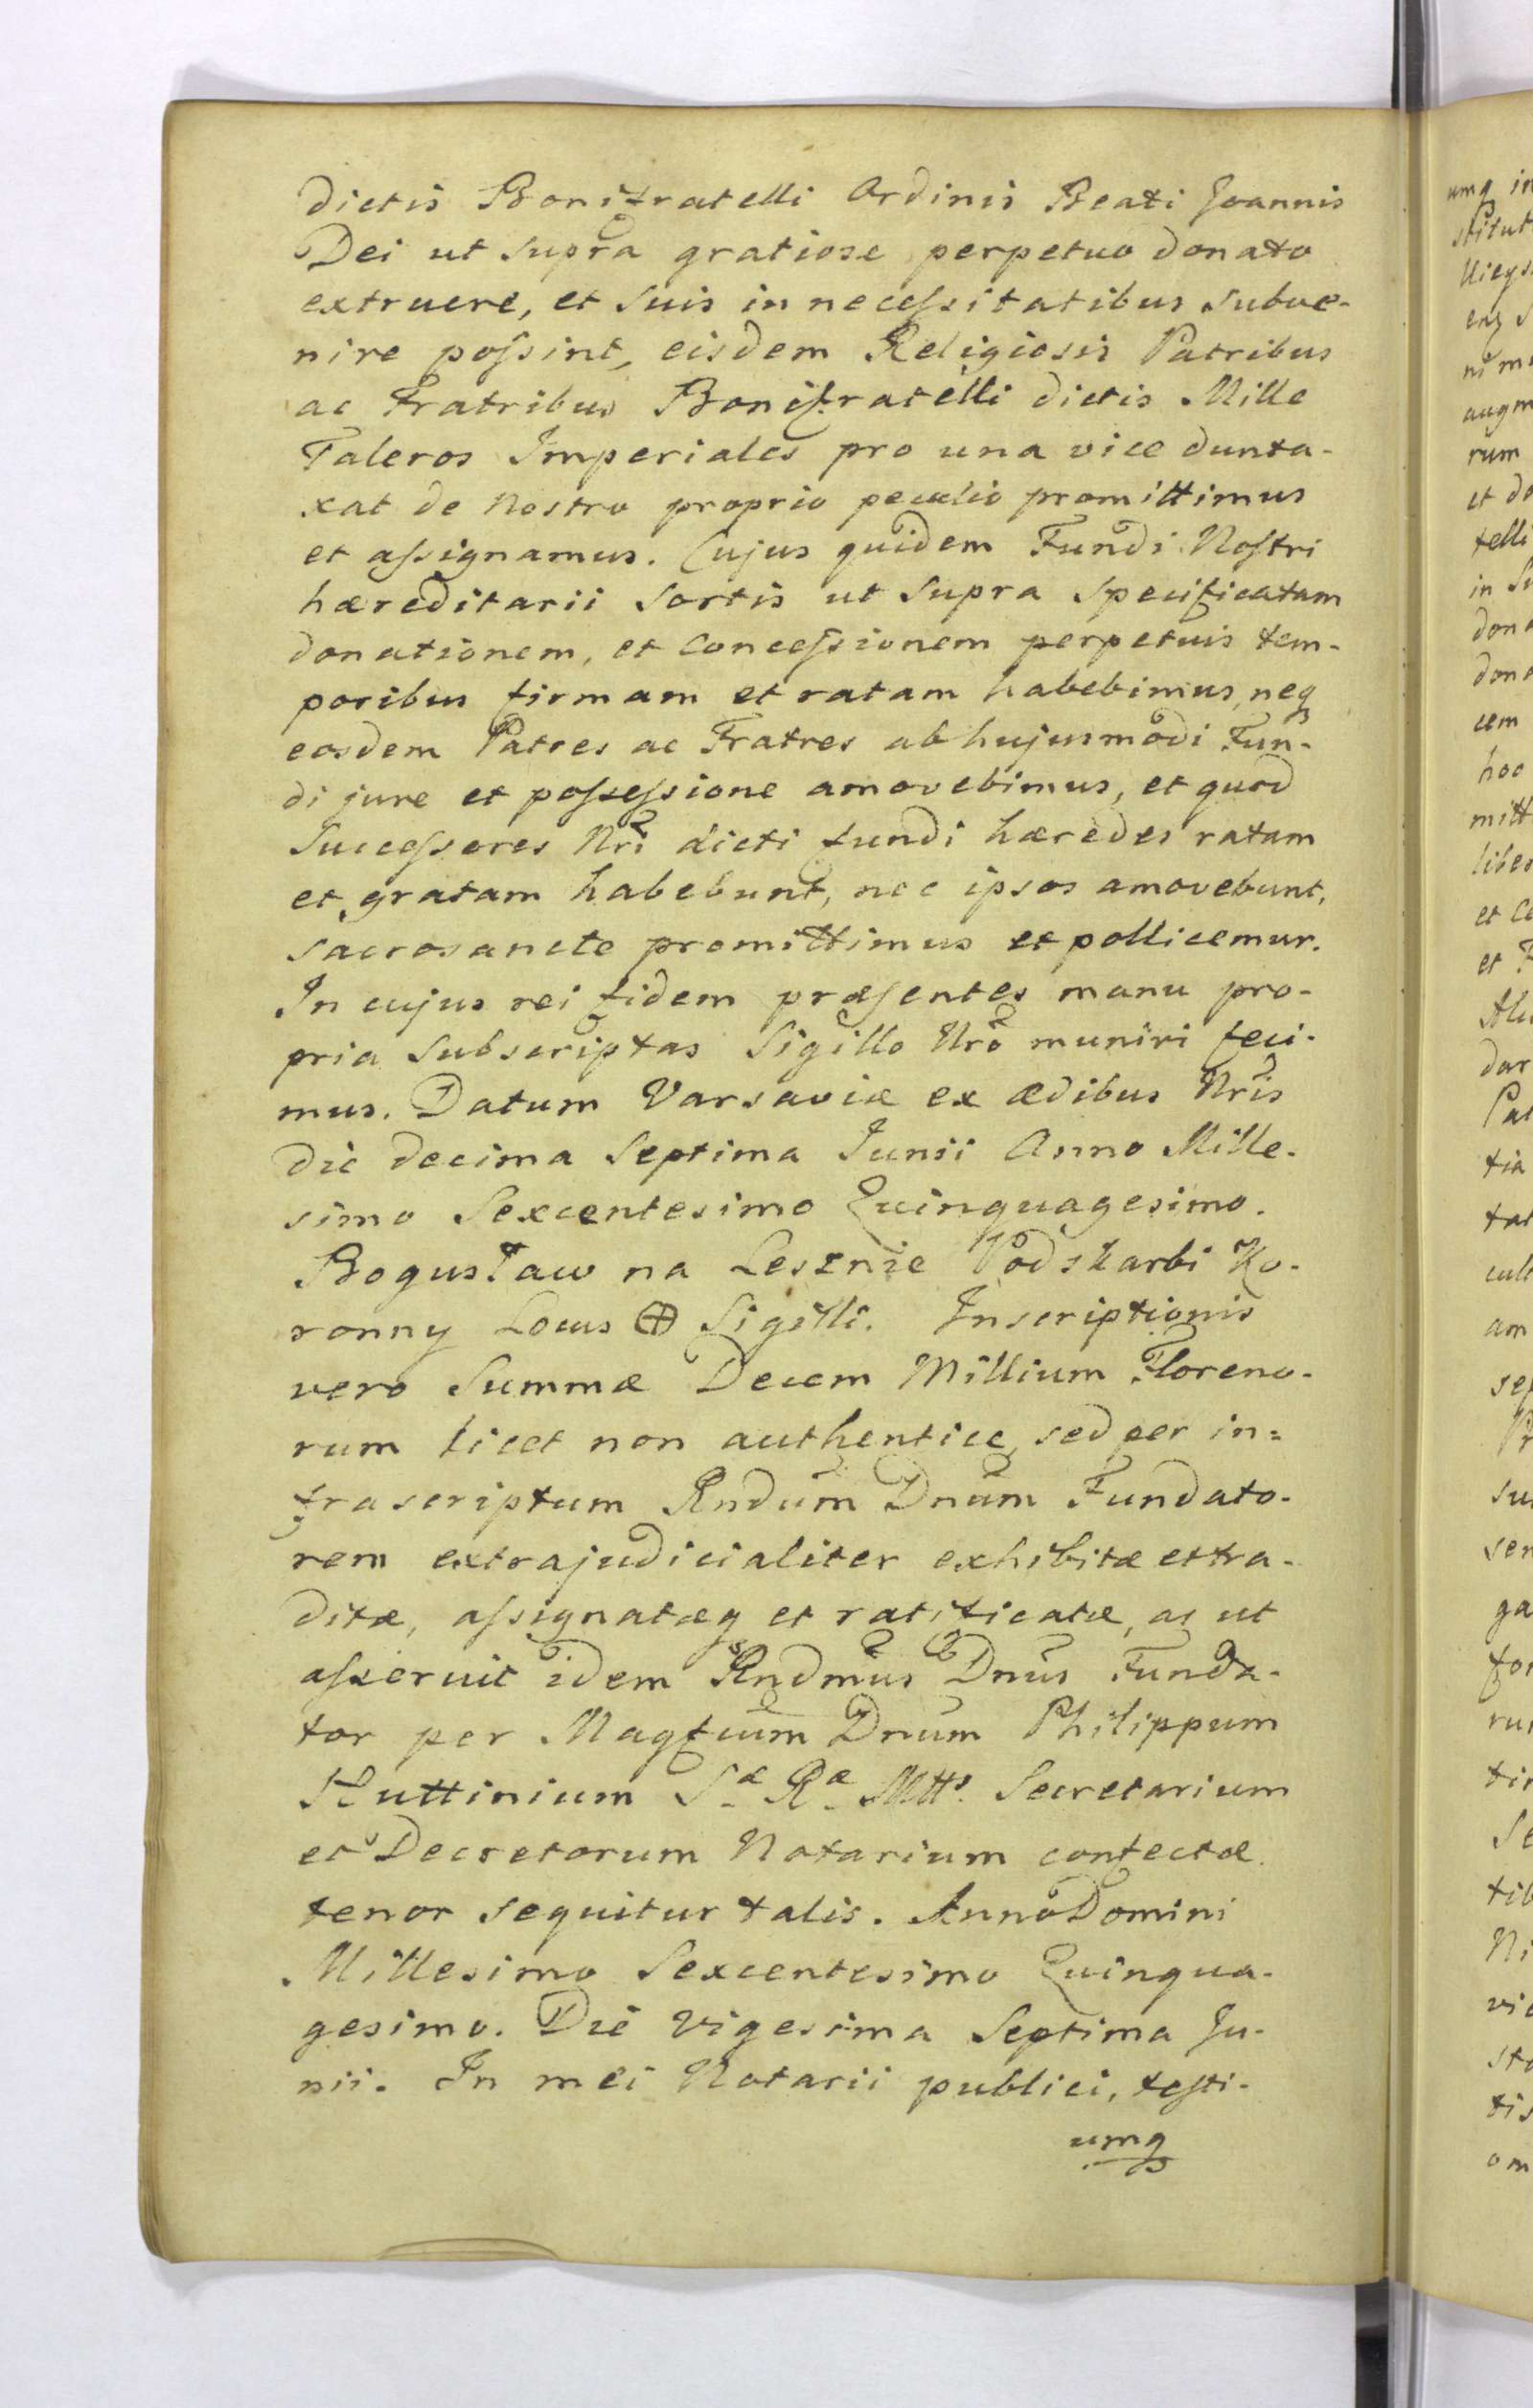 dictis Bonifratelli Ordinis Beati Joannis
Dei ut supra gratiose perpetuo donato
extruere, et suis in necessitatibus subve-
nire possint, eisdem Religiosis Patribus
ac Fratribus Bonifratelli dictis Mille
Taleros Imperiales pro una vice dunta-
xat de Nostro proprio peculio promittimus
et assignamus. Cujus quidem Fundi Nostri
hæreditarii sortis ut supra specificatam
donationem, et concessionem perpetuis tem-
poribus firmam et ratam habebimus, neq
eosdem Patres ac Fratres ab hujusmodi Fun-
di jure et possessione amovebimus, et quod
Successores Nri dicti fundi hæredes ratam
et gratam habebunt, nec ipsos amovebunt,
sacrosancte promittimus et pollicemur.
In cujus rei fidem præsentes manu pro-
pria subscriptas Sigillo Nro muniri feci-
mus. Datum Varsaviæ ex ædibus Nris
die decima Septima Junii Anno Mille-
simo Sexcentesimo Quinquagesimo.
Bogusław na Lesznie Podskarbi Ko-
ronny Locus ⊕ Sigilli. Inscriptionis
vero Summæ Decem Millium Floreno-
rum licet non authentice, sed per in=
frascriptum Rndum Dnum Fundato-
rem extrajudicialiter exhibitæ et tra-
ditæ, assignatæq et ratificatæ, ac ut
asseruit idem Rndmus Dnus Funda-
tor per Magfcum Dnum Philippum
Huttinium Sæ Ræ Mtts. Secretarium
et Decretorum Notarium confectæ
tenor sequitur talis. Anno Domini
Millesimo Sexcentesimo Quinqua-
gesimo. Die vigesima Septima Ju-
nii. In mei Notarii publici, testi-
umq